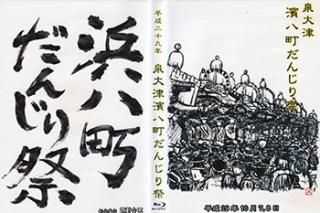 浜八町
だんじり祭
平成二十九年
泉大津濱八町だんじり祭
泉大津
濱八町だんじり祭
平成29年10月7,8日